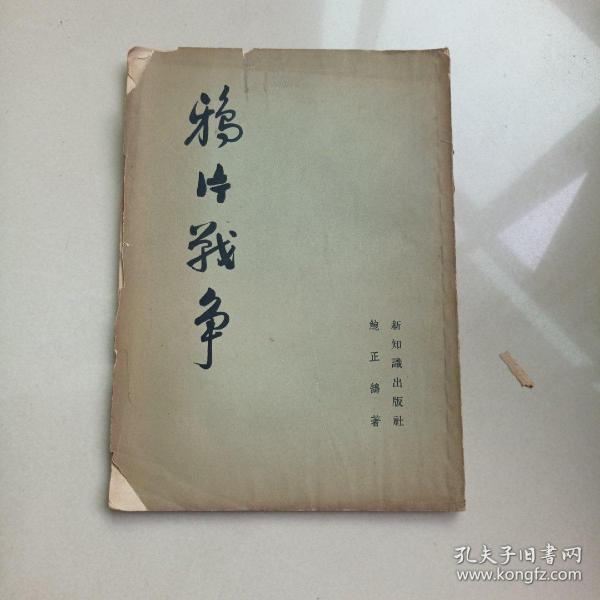 鴉片戰争
新知識出版社
鮑正鵠著
孔夫子旧書网
www.kongfz.com